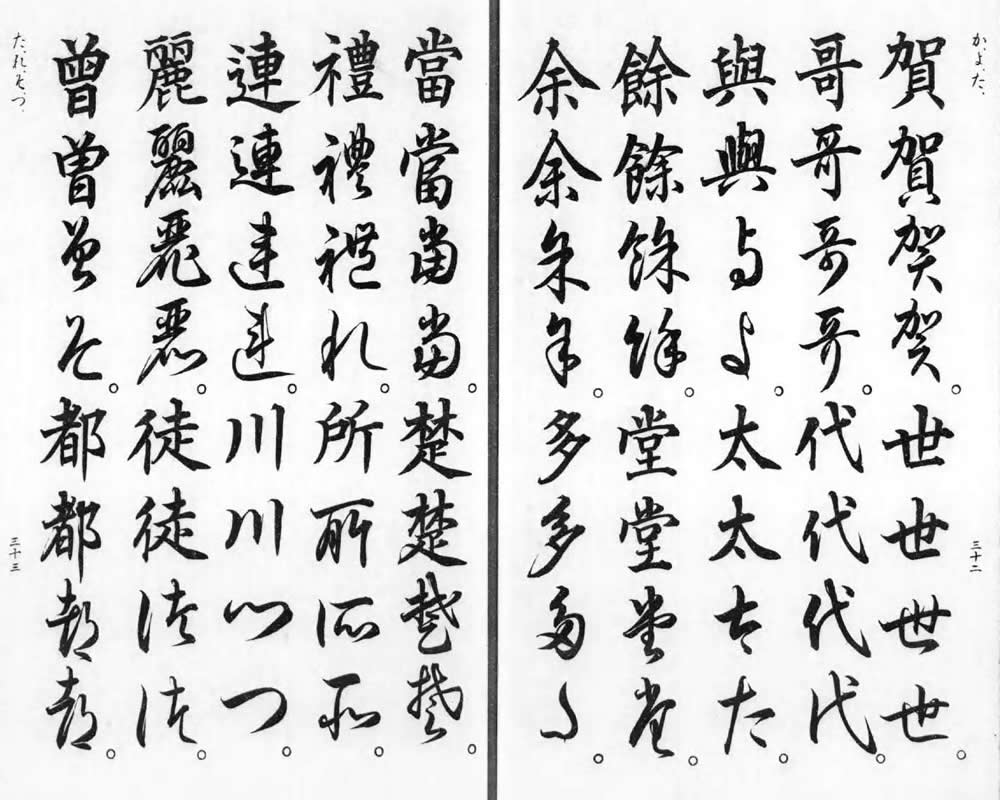 かよた、
三十二
賀賀賀賀。世世世世。
哥哥哥哥。代代代代。
與與与よ。太太太た。
餘餘餘餘。堂堂堂堂。
余余余余。多多多多。
當當當當。楚楚楚楚。
禮禮禮れ。所所所所。
連連連連。川川川つ。
麗麗麗麗。徒徒徒徒。
曽曽曽そ。都都都都。
たれそつ、
三十三